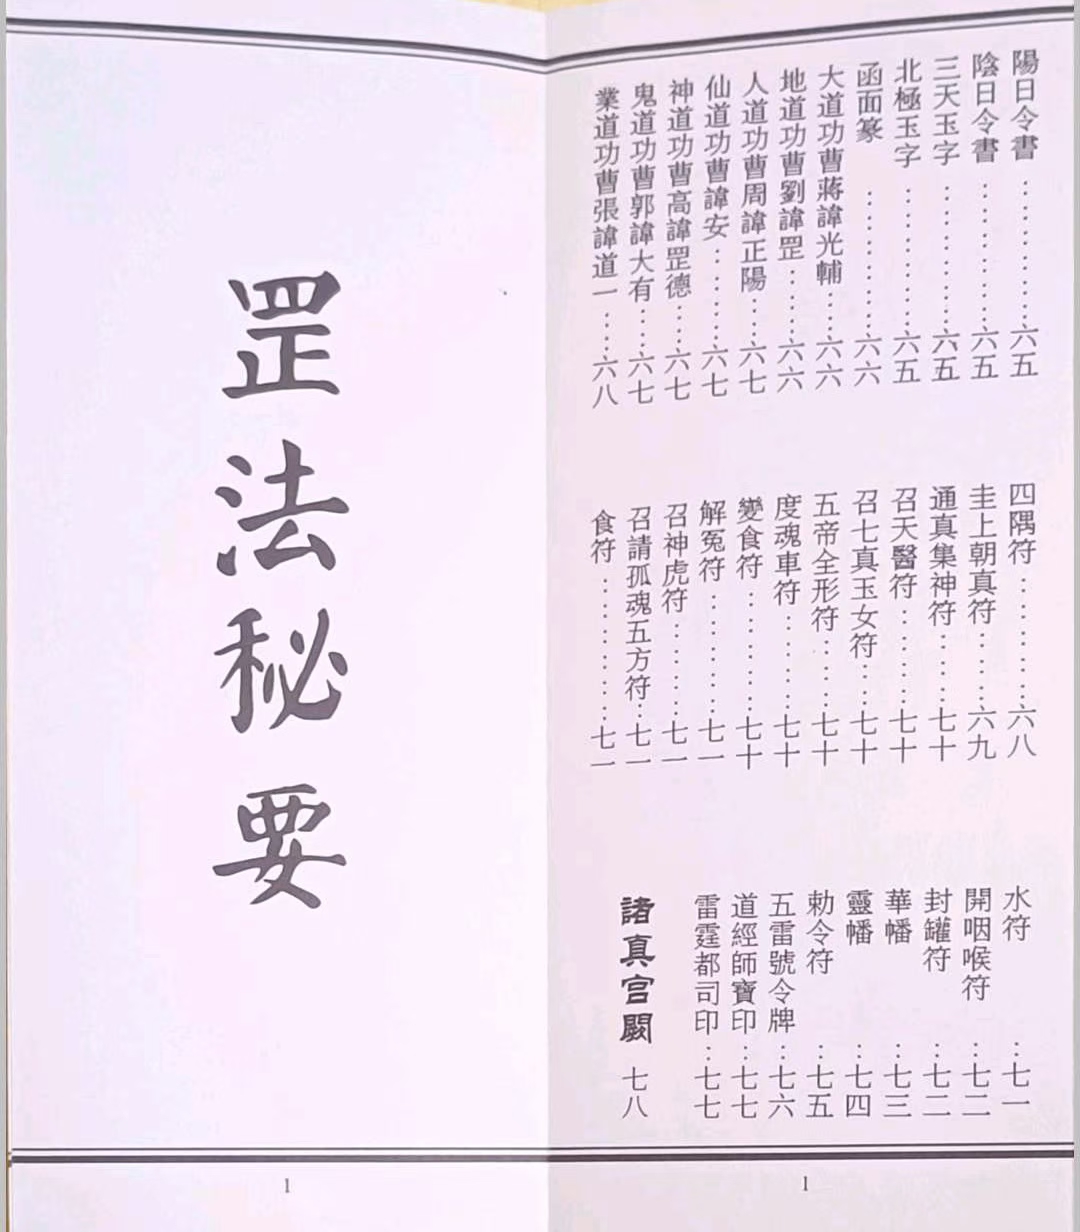 陽日令書……………六五
陰日令書……………六五
三天玉字……………六五
北極玉字……………六五
函面篆……………六六
大道功曹蔣諱光輔……六六
地道功曹劉諱罡……六六
人道功曹周諱正陽……六七
仙道功曹諱安……六七
神道功曹高諱罡德……六七
鬼道功曹郭諱大有……六七
業道功曹張諱道一……六八
四隅符……………六八
圭上朝真符………六九
通真集神符………七十
召天醫符…………七十
召七真玉女符……七十
五帝全形符………七十
度魂車符…………七十
變食符……………七十
解冤符……………七一
召神虎符…………七一
召請孤魂五方符…七一
食符………………七一
水符…七一
開咽喉符…七二
封罐符…七二
華幡…七三
靈幡…七四
勅令符…七五
五雷號令牌…七六
道經師寶印…七七
雷霆都司印…七七
諸真宮闕 七八
1
罡法秘要
1